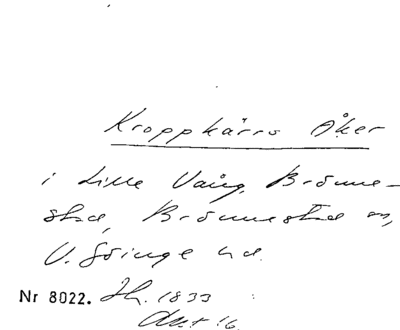 Kroppkärrs Åker
i Lille Vång, Brönne-
stad, Brönnestad sn,
V. Göinge hd.
Nr 8022. Jh. 1833
Akt 16.